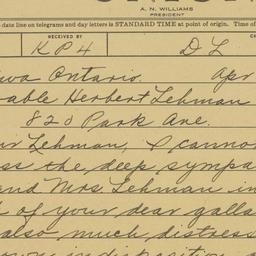 A. N. WILLIAMS
PRESIDENT
date line on telegrams and day letters is STANDARD TIME at point of origin. Time of
RECEIVED BY
KP4
DL
wa Ontario. Apr
able Herbert Lehman
820 Park Ave.
Lehman, I canno
ss the deep sympa
and Mrs. Lehman in
of your dear galla
also much distress
own indisposition